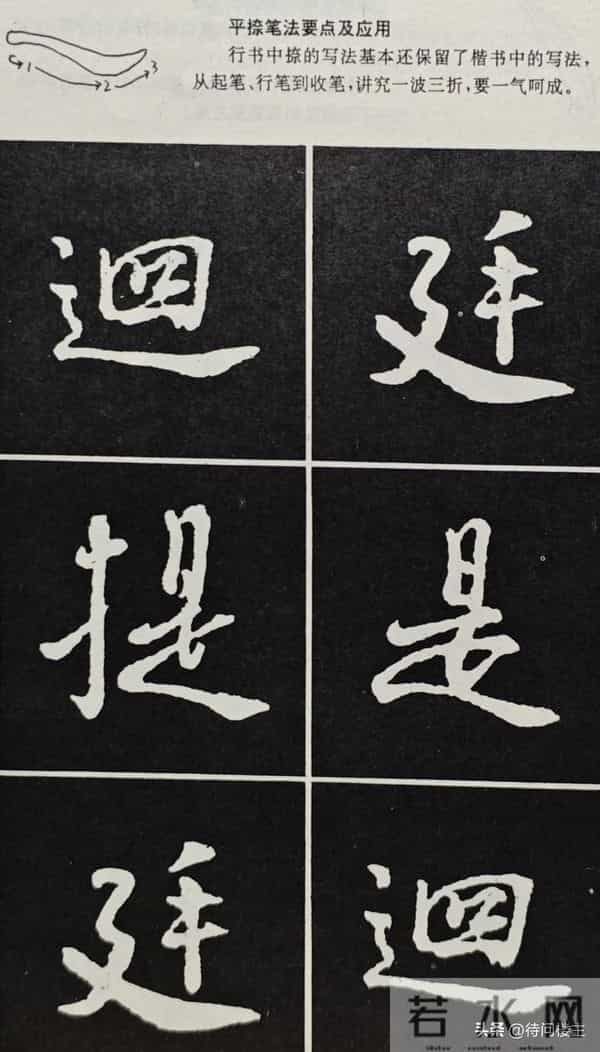 平捺笔法要点及应用
行书中捺的写法基本还保留了楷书中的写法，
从起笔、行笔到收笔，讲究一波三折，要一气呵成。
1 2 3
迴 廷
提 是
廷 迴
若水网
头条@待问楼主